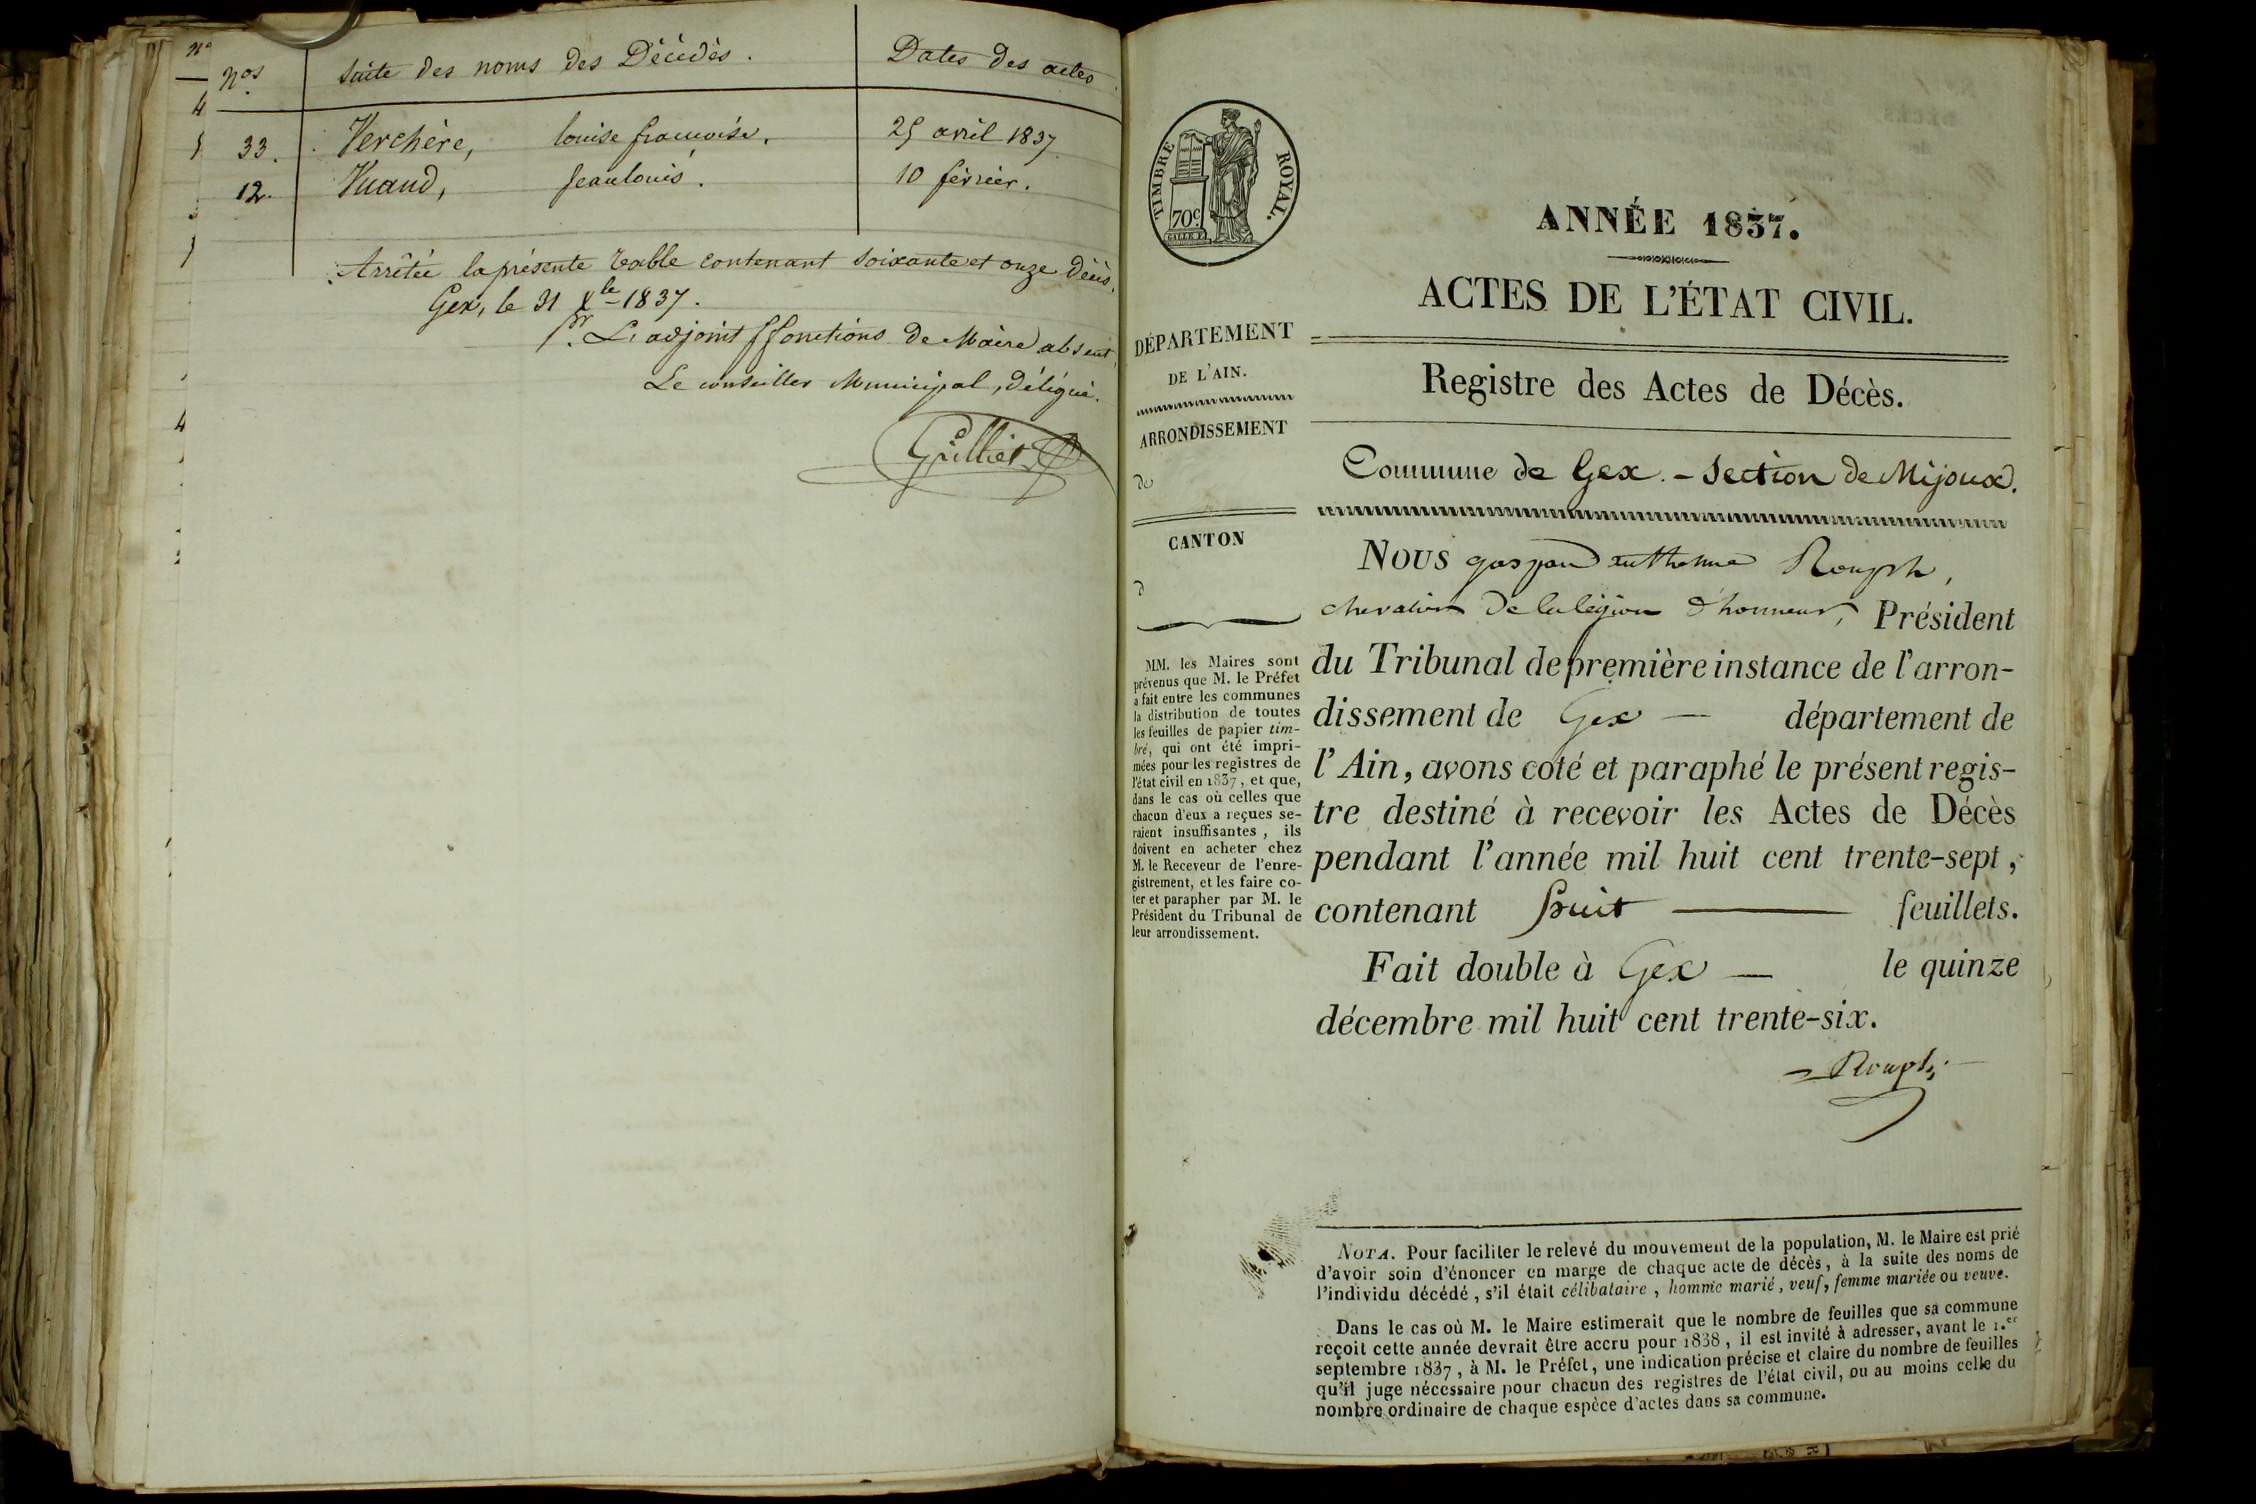 Nos Suite des noms des Décédés. Dates des actes.
33. Verchère, louise françoise. 25 avril 1837.
12. Vuaud, Jean louis. 10 février.
Arrêtée la présente table contenant soixante et onze décès.
Gex, le 31 Xbre 1837.
Pr L'adjoint ffonctions de Maire absent,
Le conseiller Municipal, délégué.
TIMBRE ROYAL.
70c
DÉPARTEMENT
DE L'AIN.
ARRONDISSEMENT
de
CANTON
d
MM. les Maires sont
prévenus que M. le Préfet
a fait entre les communes
la distribution de toutes
les feuilles de papier tim-
bré, qui ont été impri-
mées pour les registres de
l'état civil en 1837, et que,
dans le cas où celles que
chacun d'eux a reçues se-
raient insuffisantes, ils
doivent en acheter chez
M. le Receveur de l'enre-
gistrement, et les faire co-
ter et parapher par M. le
Président du Tribunal de
leur arrondissement.
ANNÉE 1837.
ACTES DE L'ÉTAT CIVIL.
Registre des Actes de Décès.
Commune de Gex. - Section de Mijoux.
NOUS gaspard anthelme Rouph,
chevalier de la légion d'honneur, Président
du Tribunal de première instance de l'arron-
dissement de Gex — département de
l'Ain, avons coté et paraphé le présent regis-
tre destiné à recevoir les Actes de Décès
pendant l'année mil huit cent trente-sept,
contenant huit — feuillets.
Fait double à Gex — le quinze
décembre mil huit cent trente-six.
Rouph
NOTA. Pour faciliter le relevé du mouvement de la population, M. le Maire est prié
d'avoir soin d'énoncer en marge de chaque acte de décès, à la suite des noms de
l'individu décédé, s'il était célibataire, homme marié, veuf, femme mariée ou veuve.
Dans le cas où M. le Maire estimerait que le nombre de feuilles que sa commune
reçoit cette année devrait être accru pour 1838, il est invité à adresser, avant le 1.er
septembre 1837, à M. le Préfet, une indication précise et claire du nombre de feuilles
qu'il juge nécessaire pour chacun des registres de l'état civil, ou au moins celle du
nombre ordinaire de chaque espèce d'actes dans sa commune.